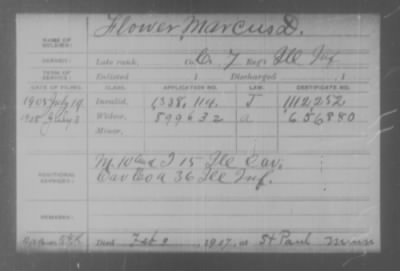 Flower, Marcus D.
NAME OF SOLDIER:
SERVICE: Late rank, Co. C, 7 Reg't Ill Inf
TERM OF SERVICE: Enlisted , 1 Discharged , 1
DATE OF FILING. CLASS. APPLICATION NO. LAW. CERTIFICATE NO.
1905 July 19 Invalid, 1338,114 J 1112,252
1918 3 Widow, 899632 a 656880
Minor,
ADDITIONAL SERVICES: M. I 15 Ill Cav.
Cav Co A 36 Ill Inf.
REMARKS:
Died Feb 2, 1917, at St Paul Minn